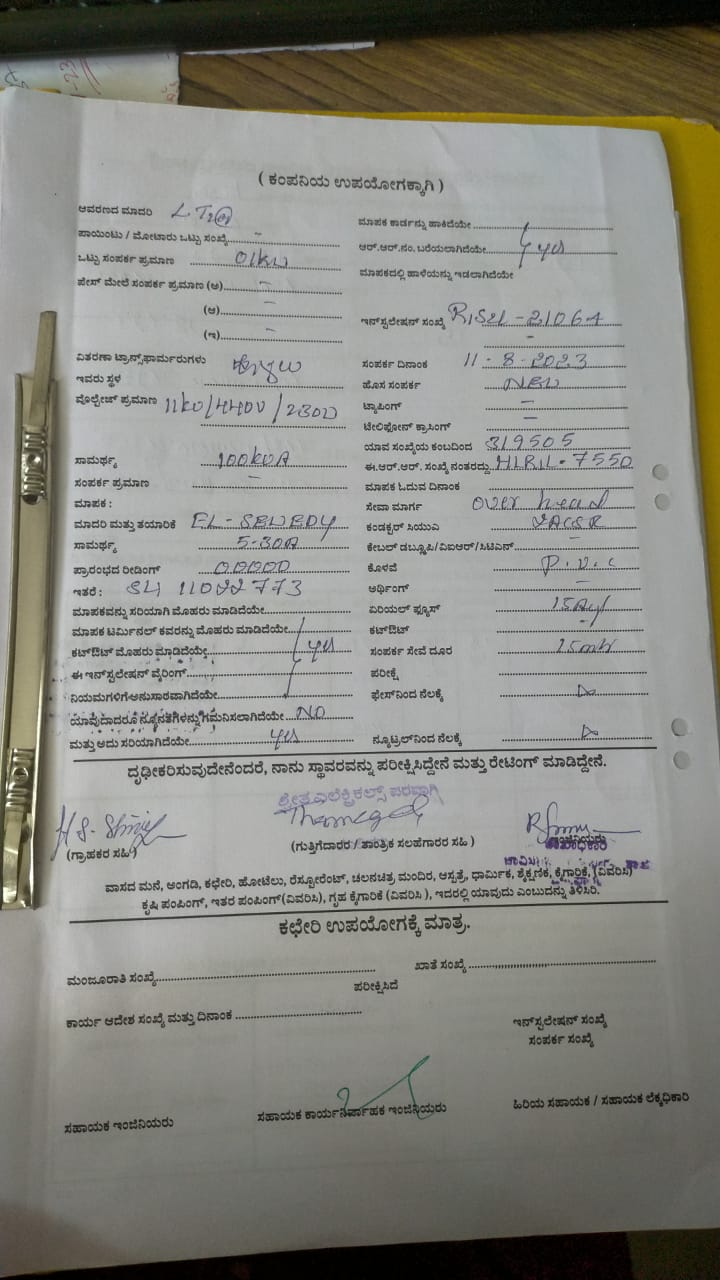 ( ಕಂಪನಿಯ ಉಪಯೋಗಕ್ಕಾಗಿ )
ಆವರಣದ ಮಾದರಿ LT2(a)
ಪಾಯಿಂಟು / ಮೋಟಾರು ಒಟ್ಟು ಸಂಖ್ಯೆ –
ಒಟ್ಟು ಸಂಪರ್ಕ ಪ್ರಮಾಣ 01kW
ಫೇಸ್ ಮೇಲೆ ಸಂಪರ್ಕ ಪ್ರಮಾಣ (ಅ) –
(ಆ) –
(ಇ) –
ವಿತರಣಾ ಟ್ರಾನ್ಸ್‌ಫಾರ್ಮರುಗಳು
ಇವರು ಸ್ಥಳ
ವೊಲ್ಟೇಜ್ ಪ್ರಮಾಣ 11kV/440V/230V
ಸಾಮರ್ಥ್ಯ 100kVA
ಸಂಪರ್ಕ ಪ್ರಮಾಣ –
ಮಾಪಕ :
ಮಾದರಿ ಮತ್ತು ತಯಾರಿಕೆ EL-SEWEDY
ಸಾಮರ್ಥ್ಯ 5-30A
ಪ್ರಾರಂಭದ ರೀಡಿಂಗ್ 00000
ಇತರೆ : S4 11022773
ಮಾಪಕವನ್ನು ಸರಿಯಾಗಿ ಮೊಹರು ಮಾಡಿದೆಯೇ
ಮಾಪಕ ಟರ್ಮಿನಲ್ ಕವರನ್ನು ಮೊಹರು ಮಾಡಿದೆಯೇ
ಕಟ್‌ಔಟ್ ಮೊಹರು ಮಾಡಿದೆಯೇ yes
ಈ ಇನ್‌ಸ್ಟಲೇಷನ್ ವೈರಿಂಗ್
ನಿಯಮಗಳಿಗೆ ಅನುಸಾರವಾಗಿದೆಯೇ
ಯಾವುದಾದರೂ ನ್ಯೂನತೆಗಳನ್ನು ಗಮನಿಸಲಾಗಿದೆಯೇ NO
ಮತ್ತು ಅದು ಸರಿಯಾಗಿದೆಯೇ yes
ಮಾಪಕ ಕಾರ್ಡನ್ನು ಹಾಕಿದೆಯೇ
ಆರ್.ಆರ್.ನಂ. ಬರೆಯಲಾಗಿದೆಯೇ yes
ಮಾಪಕದಲ್ಲಿ ಹಾಳೆಯನ್ನು ಇಡಲಾಗಿದೆಯೇ
ಇನ್‌ಸ್ಟಲೇಷನ್ ಸಂಖ್ಯೆ
–
ಸಂಪರ್ಕ ದಿನಾಂಕ 11-8-2023
ಹೊಸ ಸಂಪರ್ಕ NEW
ಟ್ಯಾಪಿಂಗ್ –
ಟೆಲಿಫೋನ್ ಕ್ರಾಸಿಂಗ್ –
ಯಾವ ಸಂಖ್ಯೆಯ ಕಂಬದಿಂದ 319505
ಈ.ಆರ್.ಆರ್. ಸಂಖ್ಯೆ ನಂತರದ್ದು HLRIL-7550
ಮಾಪಕ ಓದುವ ದಿನಾಂಕ
ಸೇವಾ ಮಾರ್ಗ over head
ಕಂಡಕ್ಟರ್ ಸಿಯುಎ
ಕೇಬಲ್ ಡಬ್ಲ್ಯೂಪಿ/ವಿಐಆರ್/ಸಿಟಿಎನ್ –
ಕೊಳವೆ P.V.C
ಅರ್ಥಿಂಗ್ –
ಏರಿಯಲ್ ಫ್ಯೂಸ್
ಕಟ್‌ಔಟ್
ಸಂಪರ್ಕ ಸೇವೆ ದೂರ
ಪರೀಕ್ಷೆ
ಫೇಸ್‌ನಿಂದ ನೆಲಕ್ಕೆ
ನ್ಯೂಟ್ರಲ್‌ನಿಂದ ನೆಲಕ್ಕೆ
ದೃಢೀಕರಿಸುವುದೇನೆಂದರೆ, ನಾನು ಸ್ಥಾವರವನ್ನು ಪರೀಕ್ಷಿಸಿದ್ದೇನೆ ಮತ್ತು ರೇಟಿಂಗ್ ಮಾಡಿದ್ದೇನೆ.
ಎಲೆಕ್ಟ್ರಿಕಲ್ಸ್ ಪರವಾಗಿ
(ಗ್ರಾಹಕರ ಸಹಿ)
(ಗುತ್ತಿಗೆದಾರರ / ತಾಂತ್ರಿಕ ಸಲಹೆಗಾರರ ಸಹಿ )
ವಾಸದ ಮನೆ, ಅಂಗಡಿ, ಕಛೇರಿ, ಹೋಟೆಲು, ರೆಸ್ಟೋರೆಂಟ್, ಚಲನಚಿತ್ರ ಮಂದಿರ, ಆಸ್ಪತ್ರೆ, ಧಾರ್ಮಿಕ, ಶೈಕ್ಷಣಿಕ, ಕೈಗಾರಿಕೆ, (ವಿವರಿಸಿ)
ಕೃಷಿ ಪಂಪಿಂಗ್, ಇತರ ಪಂಪಿಂಗ್ (ವಿವರಿಸಿ), ಗೃಹ ಕೈಗಾರಿಕೆ (ವಿವರಿಸಿ ), ಇದರಲ್ಲಿ ಯಾವುದು ಎಂಬುದನ್ನು ತಿಳಿಸಿರಿ.
ಕಛೇರಿ ಉಪಯೋಗಕ್ಕೆ ಮಾತ್ರ.
ಮಂಜೂರಾತಿ ಸಂಖ್ಯೆ ಖಾತೆ ಸಂಖ್ಯೆ
ಪರೀಕ್ಷಿಸಿದೆ
ಕಾರ್ಯ ಆದೇಶ ಸಂಖ್ಯೆ ಮತ್ತು ದಿನಾಂಕ
ಇನ್‌ಸ್ಟಲೇಷನ್ ಸಂಖ್ಯೆ
ಸಂಪರ್ಕ ಸಂಖ್ಯೆ
ಸಹಾಯಕ ಇಂಜಿನಿಯರು ಸಹಾಯಕ ಕಾರ್ಯನಿರ್ವಾಹಕ ಇಂಜಿನಿಯರು ಹಿರಿಯ ಸಹಾಯಕ / ಸಹಾಯಕ ಲೆಕ್ಕಧಿಕಾರಿ